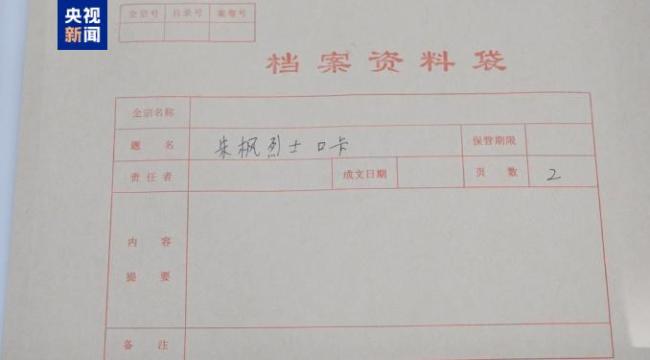 央视
新闻
全宗号 目录号 案卷号
档案资料袋
全宗名称
题名 朱枫烈士口卡 保管期限
责任者 成文日期 页数 2
内容
提要
备注